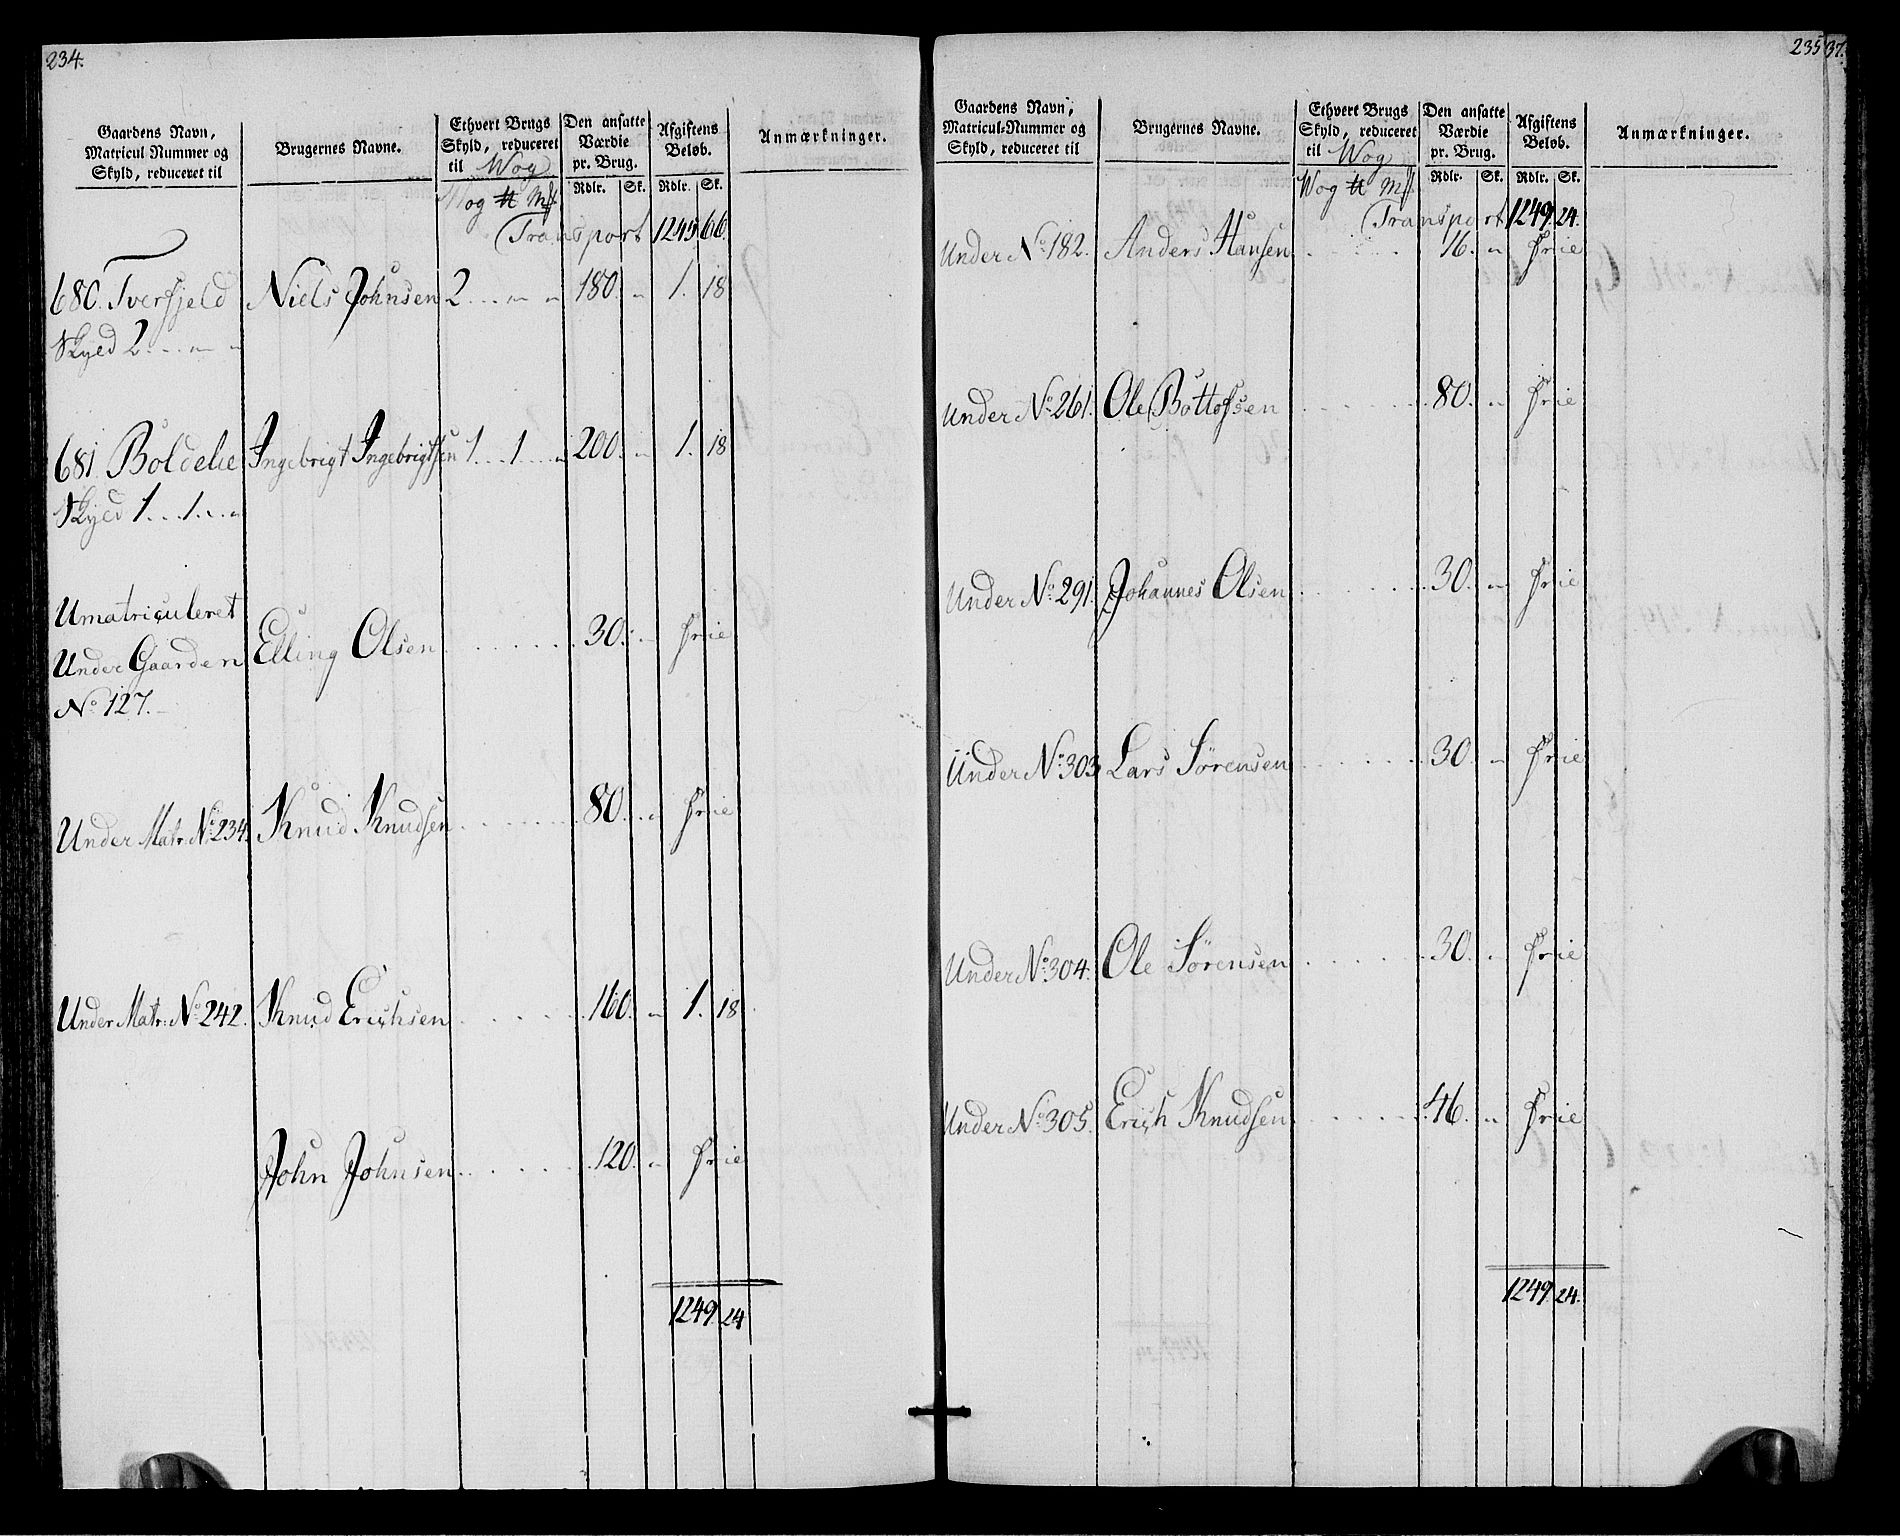 234.
Gaardens Navn, Matricul Nummer og Skyld, reduceret til | Brugernes Navne. | Ethvert Brugs Skyld, reduceret til Wog | Den ansatte Værdie pr. Brug. | Afgiftens Beløb. | Anmærkninger.
Wog ℔ Mk | Rdlr. | Sk. | Rdlr. | Sk.
Transport 1245 66.
680. Tverfjeld Niels Johnsen 2 . . . „ „ 180. „ 1. 18
Skyld 2. . . „ „
681 Boldelie Ingebrigt Ingebrigtsen 1 . . 1 . . . „ 200. „ 1. 18
Skyld 1 . . 1 . . „
Umatriculeret
Under Gaarden Elling Olsen . . . . . . 30. „ frie
No 127.
Under Matr. No 234. Knud Knudsen . . . . . . 80. „ frie
Under Matr. No 242. Knud Erichsen . . . . . . 160. „ 1. 18
John Johnsen . . . . . . 120. „ frie
1249. 24
235 37.
Gaardens Navn, Matricul-Nummer og Skyld, reduceret til | Brugernes Navne. | Ethvert Brugs Skyld, reduceret til Wog | Den ansatte Værdie pr. Brug. | Afgiftens Beløb. | Anmærkninger.
Wog ℔ Mk | Rdlr. | Sk. | Rdlr. | Sk.
Transport 1249. 24.
Under No 182. Anders Hansen . . . . . 16. „ frie
Under No 261. Ole Bottofsen . . . . . . 80. „ frie
Under No 291. Johannes Olsen . . . . . . 30. „ frie
Under No 303 Lars Sørensen . . . . . . 30. „ frie
Under No 304. Ole Sørensen . . . . . . 30. „ frie
Under No 305. Erich Knudsen . . . . . 46. „ frie
1249. 24.